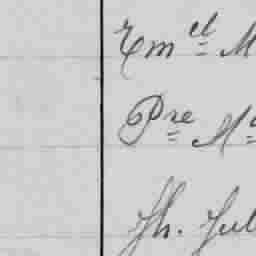 Em^el M
Pre Ma
Jh. Jul